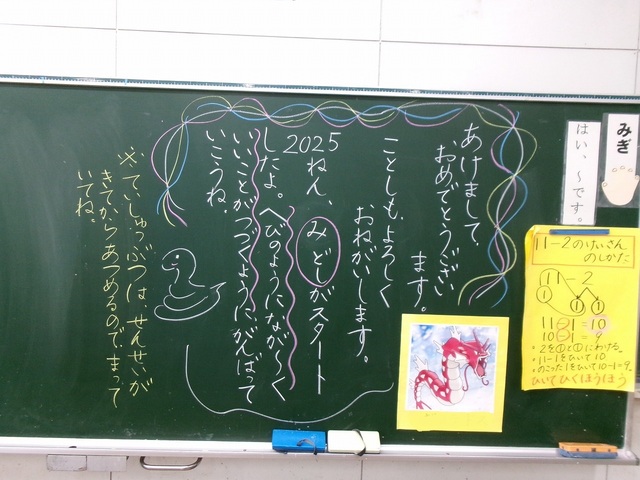 あけまして、
おめでとうござい
ます。
ことしも、よろしく
おねがいします。
2025
ねん、みどしがスタート
したよ。へびのようにながーく
いいことがつづくように、がんばって
いこうね。
※ていしゅつぶつは、せんせいが
きてからあつめるので、まって
いてね。
みぎ
はい、～です。
11-2のけいさん
のしかた
11-2
① ① ①
11-1=10
10-1=9
・2を①と①にわける。
・11-1をひいて10
・のこった1をひいて10-1=9。
ひいてひくほうほう